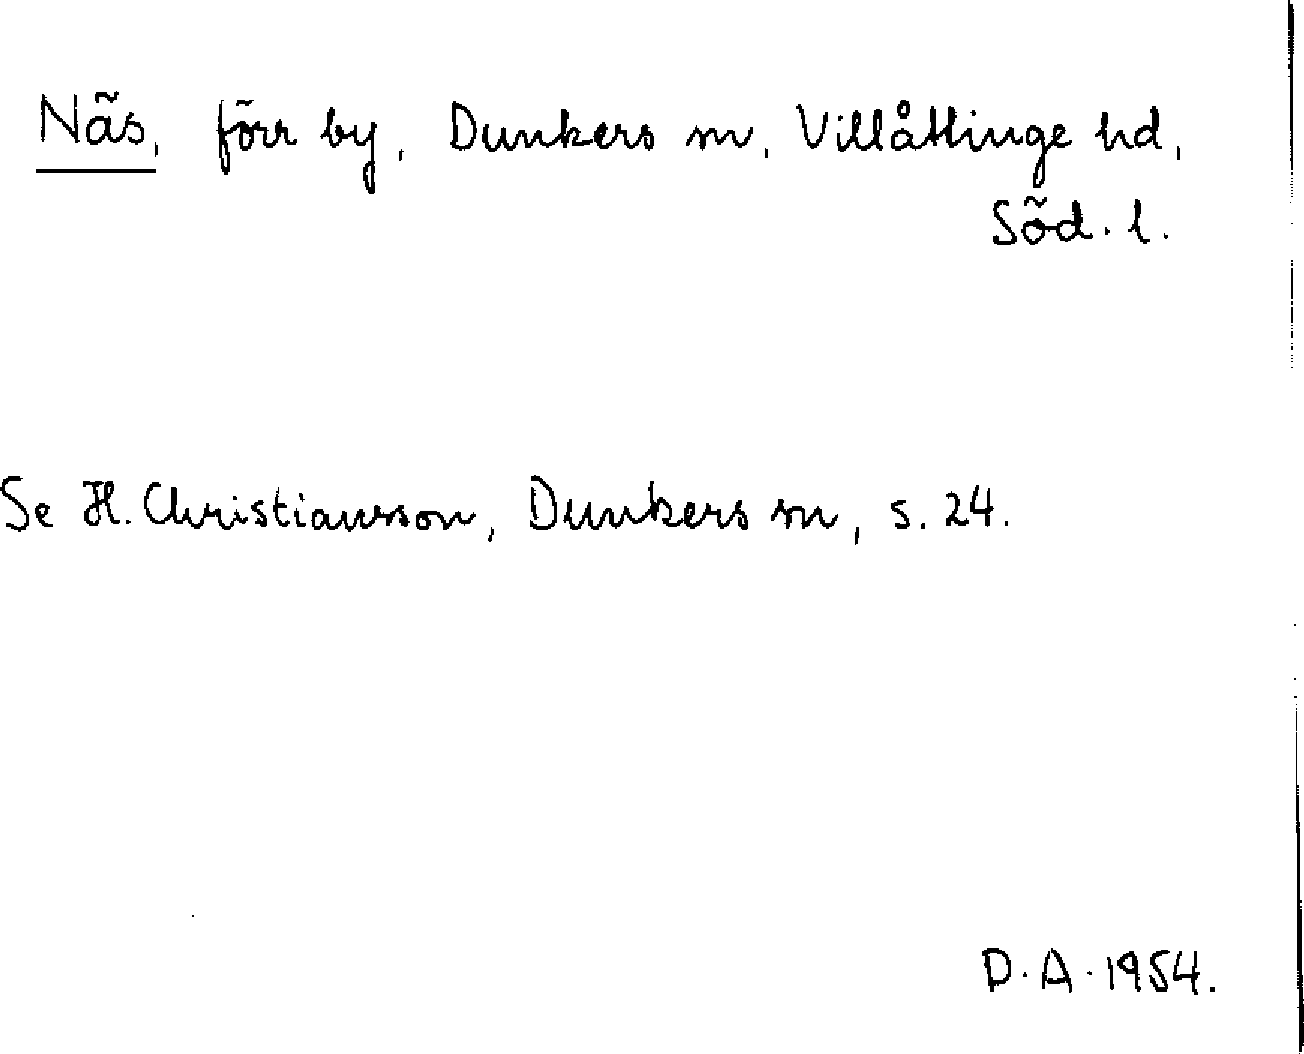 Näs, förr by, Dunkers sn, Villåttinge hd,
Söd. l.
Se H. Christiansson, Dunkers sn, s. 24.
D. A. 1954.